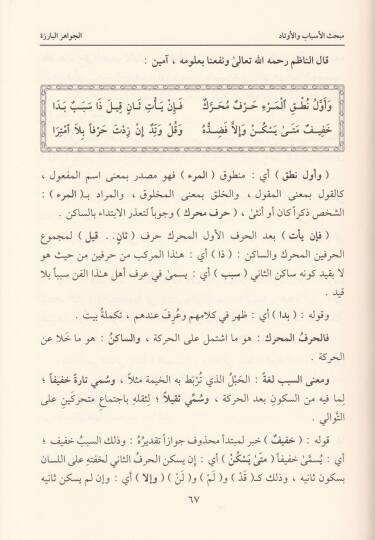 مبحث الأسباب والأوتاد
الجواهر البارزة
قال الناظم رحمه الله تعالىٰ ونفعنا بعلومه ، آمين :
وَأَوَّلُ نُطْقِ الْمَرْءِ حَرْفٌ مُحَرَّكٌ فَإِنْ يَأْتِ ثَانٍ قِيلَ ذَا سَبَبٌ بَدَا
خَفِيفٌ مَتَىٰ يَسْكُنْ وَإِلاَّ فَضِدُّهُ وَقُلْ وَتِدٌ إِنْ زِدْتَ حَرْفاً بِلاَ امْتِرَا
( وأول نطق ) أي : منطوق ( المرء ) فهو مصدر بمعنى اسم المفعول ،
كالقول بمعنى المقول ، والخلق بمعنى المخلوق ، والمراد بـ( المرء ) :
الشخص ذكراً كان أو أنثىٰ ، ( حرف محرك ) وجوباً لتعذر الابتداء بالساكن .
( فإن يأت ) بعد الحرف الأول المحرك حرف ( ثانٍ . . قيل ) لمجموع
الحرفين المحرك والساكن : ( ذا ) أي : هذا المركب من حرفين من حيث هو
لا بقيد كونه ساكن الثاني ( سبب ) أي : يسمىٰ في عرف أهل هـٰذا الفن سبباً بلا
قيد .
وقوله : ( بدا ) أي : ظهر في كلامهم وعُرِفَ عندهم ، تكملةُ بيت .
فالحرفُ المحرك : هو ما اشتمل على الحركة ، والساكنُ : هو ما خَلا عن
الحركة .
ومعنى السبب لغةً : الحَبْلُ الذي تُرْبَط به الخيمة مثلاً ، وسُمي تارةً خفيفاً ؛
لِما فيه من السكونِ بعد الحركة ، وسُمِّي ثقيلاً ؛ لِثقلِه باجتماعِ متحركَينِ على
التَّوالي .
قوله : ( خفيفٌ ) خبر لمبتدأ محذوف جوازاً تقديرُهُ : وذلك السببُ خفيف ؛
أي : يُسمَّىٰ خفيفاً ( متىٰ يَسْكُنْ ) أي : إن يسكن الحرفُ الثاني لخفتهِ على اللسان
بسكون ثانيه ، وذلك كـ( قَدْ ) و( لَمْ ) و( لَنْ ) ( وإلا ) أي : وإن لم يسكن ثانيه
٦٧